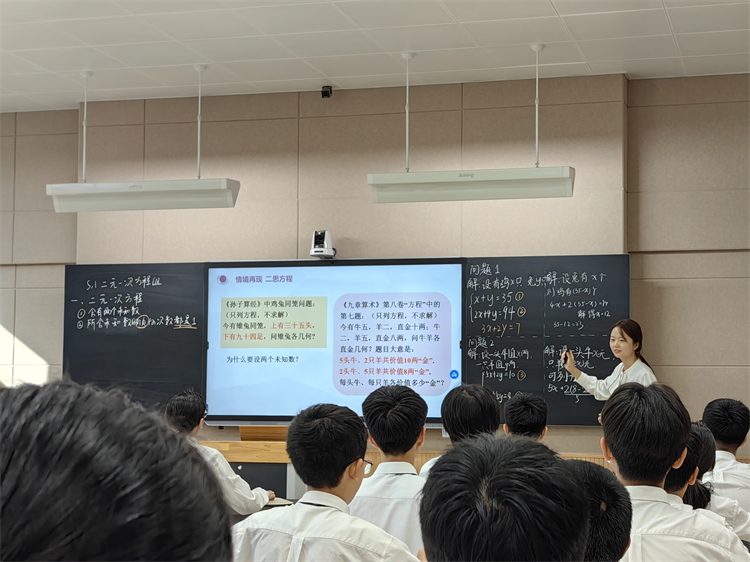 5.1 二元一次方程组
一、二元一次方程
① 含有两个未知数
② 所含未知数的项的次数都是1
情境再现 二思方程
《孙子算经》中鸡兔同笼问题：
（只列方程，不求解）
今有雉兔同笼，上有三十五头，
下有九十四足，问雉兔各几何？
为什么要设两个未知数？
《九章算术》第八卷“方程”中的
第七题：（只列方程，不求解）
今有牛五、羊二，直金十两；牛
二、羊五，直金八两，问牛羊各
直金几何？题目大意是：
5头牛、2只羊共价值10两“金”，
2头牛、5只羊共价值8两“金”，
每头牛、每只羊各价值多少“金”？
问题1
x+y=35 ①
2x+4y=94 ②
3x+2y=7
问题2
解：设有x个
4x+2(35-x)=94
解得x=12
35-12=23